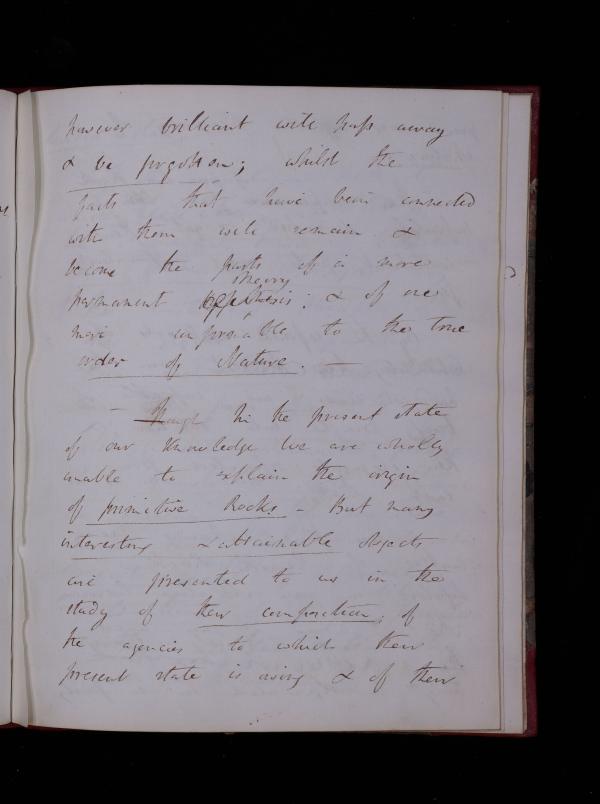 however brilliant will pass away
& be forgotten; whilst the
facts that have been connected
with them will remain &
become the parts of a more
theory
permanent : & of one
more to the true
order of Nature. —
— Though In the present state
of our knowledge we are wholly
unable to explain the origin
of primitive Rocks - But many
interesting & attainable objects
are presented to us in the
study of their composition; of
the agencies to which their
present state is owing & of their